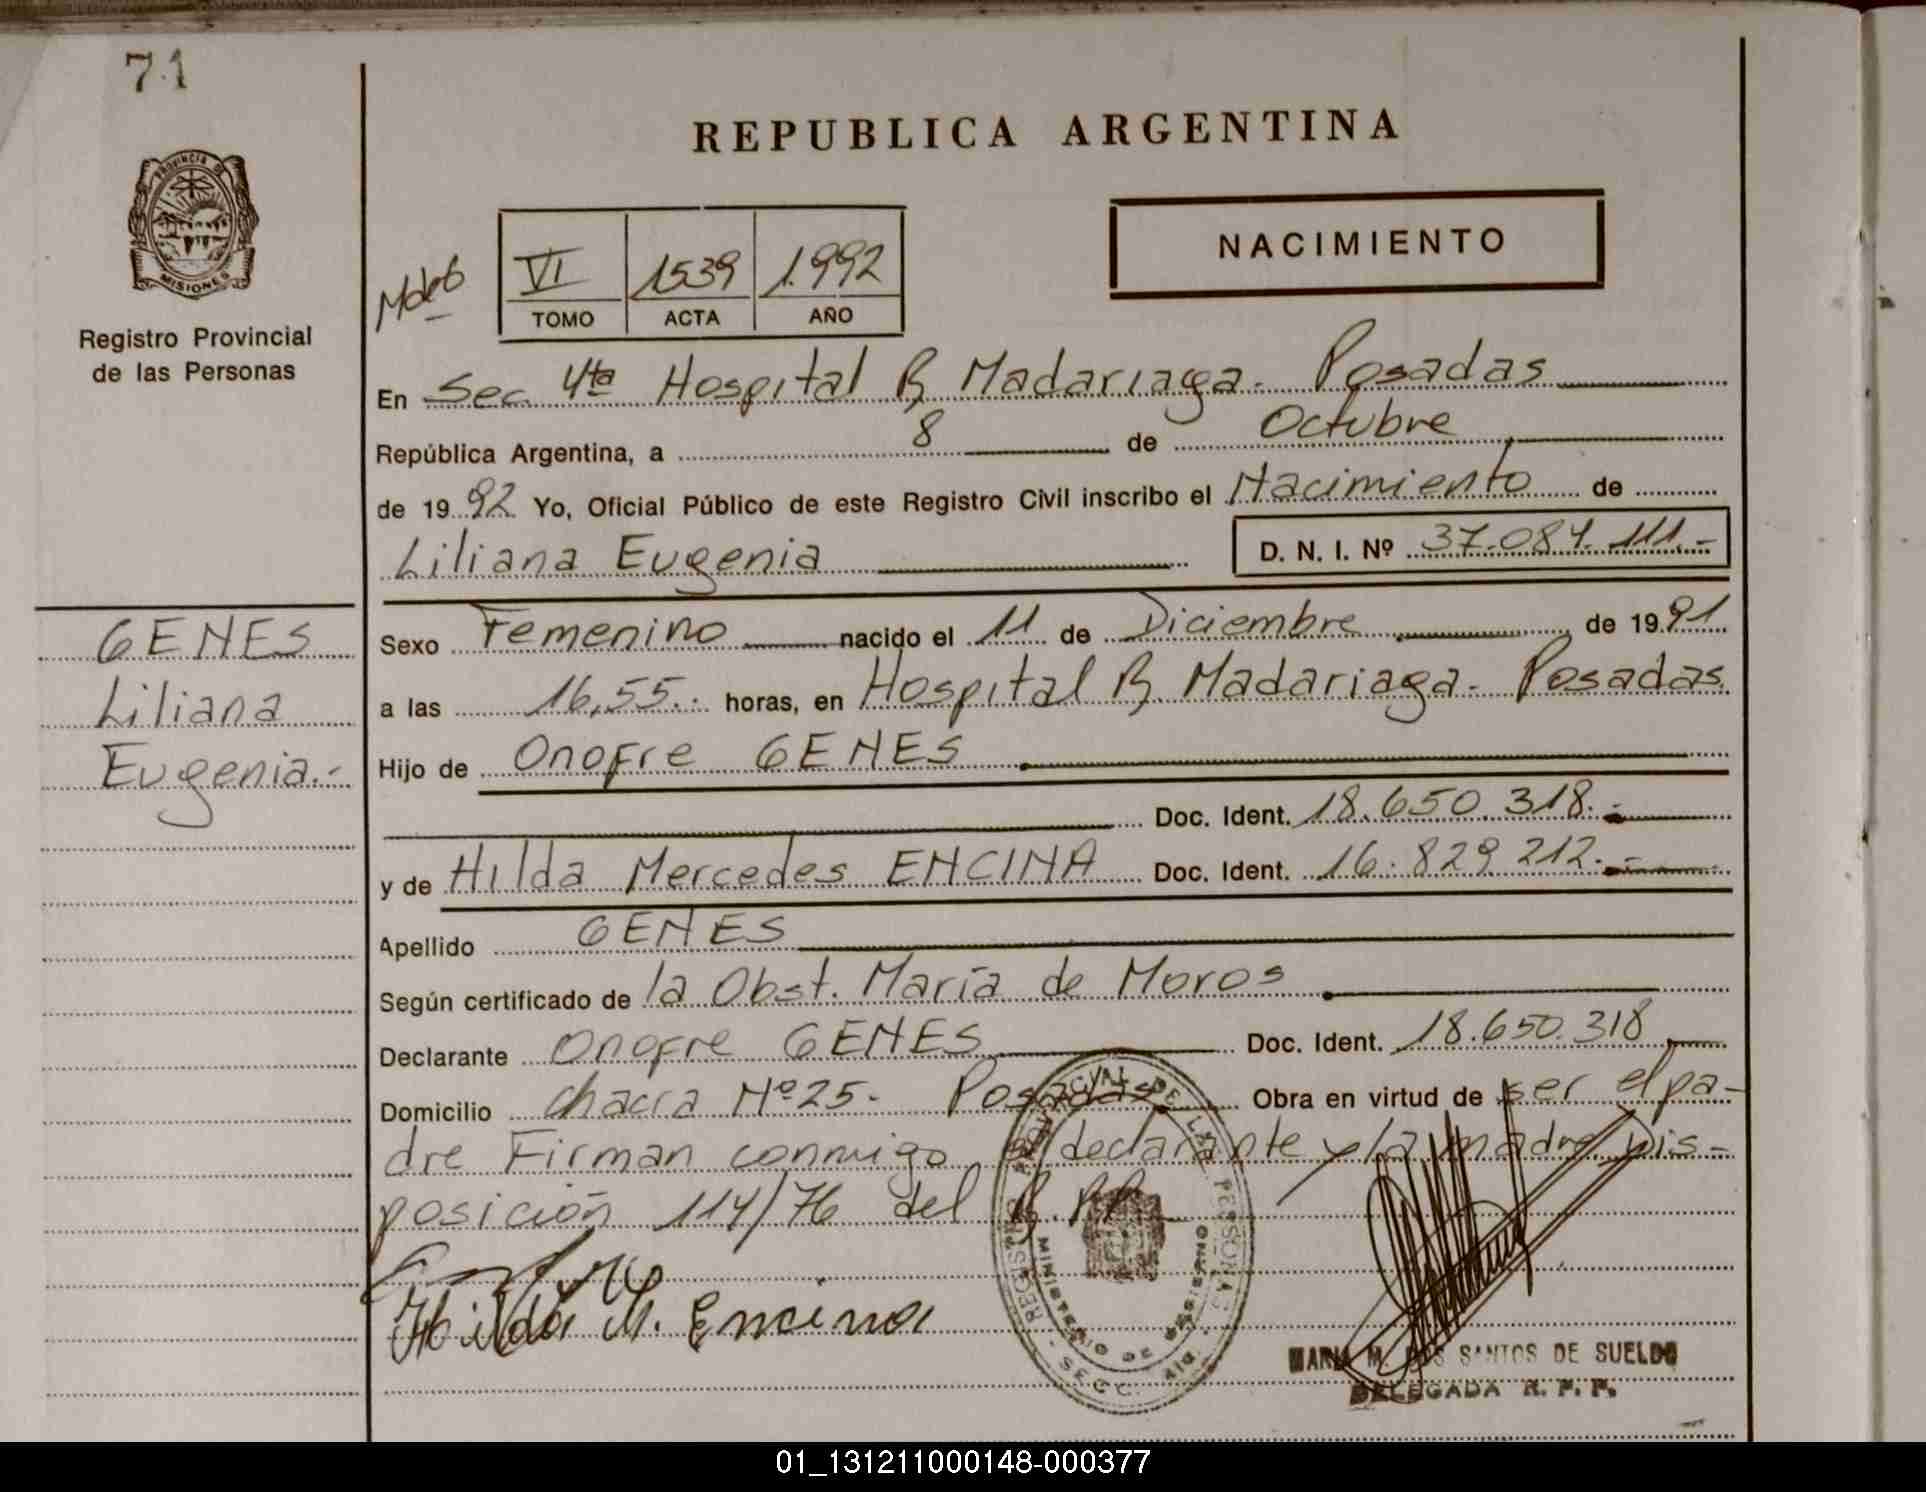 71
REPUBLICA ARGENTINA
PROVINCIA DE
MISIONES
Registro Provincial
de las Personas
VI 1539 1.992
TOMO ACTA AÑO
NACIMIENTO
En Sec. 4ta Hospital R Madariaga. Posadas
República Argentina, a 8 de Octubre
de 1992 Yo, Oficial Público de este Registro Civil inscribo el Nacimiento de
Liliana Eugenia D. N. I. Nº 37.084.111.-
GENES
Liliana
Eugenia.-
Sexo Femenino nacido el 11 de Diciembre de 1991
a las 16,55. horas, en Hospital R Madariaga. Posadas.
Hijo de Onofre GENES
Doc. Ident. 18.650.318.-
y de Hilda Mercedes ENCINA Doc. Ident. 16.829.212.-
Apellido GENES
Según certificado de la Obst. María de Moros
Declarante Onofre GENES Doc. Ident. 18.650.318
Domicilio chacra Nº 25. Posadas Obra en virtud de ser el pa-
dre Firman conmigo el declarante y la madre Dis-
posición 114/76 del R.PP.
Hilda M. Encina
MARIA M. DOS SANTOS DE SUELDO
DELEGADA R. P. P.
01_131211000148-000377